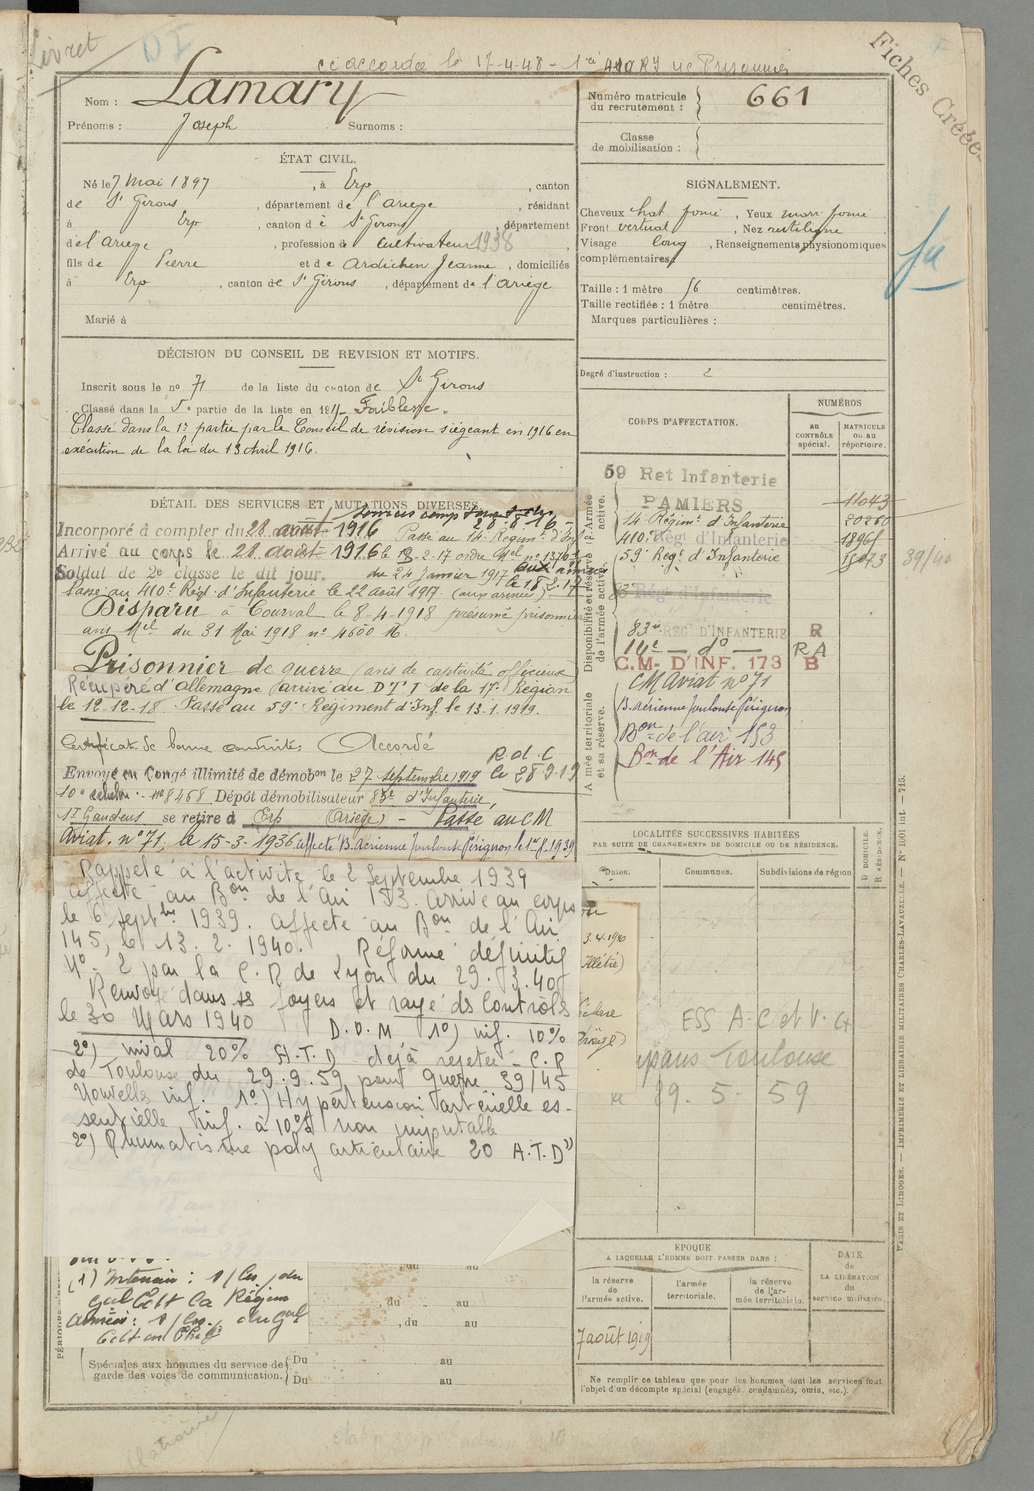 Livret
D I
cc accordée le 17-4-48 - 1re
Fiches Créées
Nom : Lamary
Prénoms : Joseph Surnoms :
Numéro matricule du recrutement : 661
Classe de mobilisation :
ÉTAT CIVIL.
Né le 7 mai 1897 , à Erp , canton
de St Girons , département de l'ariège , résidant
à Erp , canton de St Girons , département
de l'ariège , profession de cultivateur 1938
fils de Pierre et de Ardichen Jeanne , domiciliés
à Erp , canton de St Girons , département de l'ariège
Marié à
SIGNALEMENT.
Cheveux chat foncé , Yeux marr foncé
Front vertical , Nez rectiligne
Visage long , Renseignements physionomiques
complémentaires
Taille : 1 mètre 56 centimètres.
Taille rectifiée : 1 mètre centimètres.
Marques particulières :
Degré d'instruction : 2
DÉCISION DU CONSEIL DE REVISION ET MOTIFS.
Inscrit sous le no 71 de la liste du canton de St Girons
Classé dans la 5e partie de la liste en 191 - Faiblesse.
Classé dans la 1e partie par le Conseil de révision siégeant en 1916 en
exécution de la loi du 13 Avril 1916.
DÉTAIL DES SERVICES ET MUTATIONS DIVERSES.
Incorporé à compter du 28 août 1916 Passé au 14e Régimt d'Inf
Arrivé au corps le 28 août 1916
Soldat de 2e classe le dit jour. du 24 Janvier 1917 aux armées
le 18.2.17
Passé au 410e Régt d'Infanterie le 22 août 1917 (aux armées)
Disparu à Courval le 8.4.1918 présumé prisonnier
avis Mel du 31 Mai 1918 no 4600 16.
Prisonnier de guerre (avis de captivité officieux)
Récupéré d'allemagne (arrivé au D.T.I de la 17e Région
le 12-12-18. Passé au 59e Régiment d'Inf. le 13.1.1919.
Certificat de bonne conduite Accordé
R.d.C
Envoyé en Congé illimité de démobon le 27 septembre 1919 le 28.9.19
10e échelon - no 8468 Dépôt démobilisateur 83e d'Infanterie,
St Gaudens se retire à Erp (Ariège) - Passé au CM
Aviat. no 71, le 15-3-1936
Rappelé à l'activité le 2 Septembre 1939
affecté au Bon de l'Air 153. arrivé au corps
le 6 septbre 1939. affecté au Bon de l'Air
145, le 13.2.1940. Réformé définitif
No 2 par la C.R de Lyon du 29.3.40
Renvoyé dans ses foyers et rayé des Contrôles
le 30 Mars 1940 D.O.M 1o) inf. 10%
2o) inval 20% A.T.D déjà rejetée - C.R
de Toulouse du 29.9.59 pour guerre 39/45
Nouvelle inf. 1o) Hypertension artérielle es-
sentielle inf. à 10% non imputable
2o) Rhumatisme poly articulaire 20 A.T.D
CORPS D'AFFECTATION.
NUMÉROS
AU CONTRÔLE SPÉCIAL.
MATRICULE OU AU RÉPERTOIRE.
59 Ret Infanterie
PAMIERS 11043
14e Régimt d'Infanterie 20260
410e Régt d'Infanterie
59e Régt d'Infanterie
39/40
Rég. d'Infanterie
83e REGt D'INFANTERIE R
14e - do - RA
C.M. D'INF. 173 B
CM Aviat no 71
B. aérienne Toulouse Pérignon
Bon de l'air 153
Bon de l'Air 145
Disponibilité et réserve de l'armée active.
Armée active.
Armée territoriale et sa réserve.
LOCALITÉS SUCCESSIVES HABITÉES
PAR SUITE DE CHANGEMENTS DE DOMICILE OU DE RÉSIDENCE.
Dates. Communes. Subdivisions de région
D. DOMICILE. R. RÉSIDENCE.
3.4.1940
ESS A-C et V. G
Toulouse
29 - 5 - 59
(1) Intérieur :
Gal Ct la Région
armées :
du au
, du au
Spéciales aux hommes du service de garde des voies de communication.
Du au
Du au
ÉPOQUE
A LAQUELLE L'HOMME DOIT PASSER DANS :
la réserve de l'armée active.
l'armée territoriale.
la réserve de l'armée territoriale.
DATE de LA LIBÉRATION du service militaire.
7 août 1919
Ne remplir ce tableau que pour les hommes dont les services font
l'objet d'un décompte spécial (engagés, condamnés, omis, etc.).
PARIS ET LIMOGES. — IMPRIMERIE ET LIBRAIRIE MILITAIRES CHARLES-LAVAUZELLE. — No 1001 int. — 715.